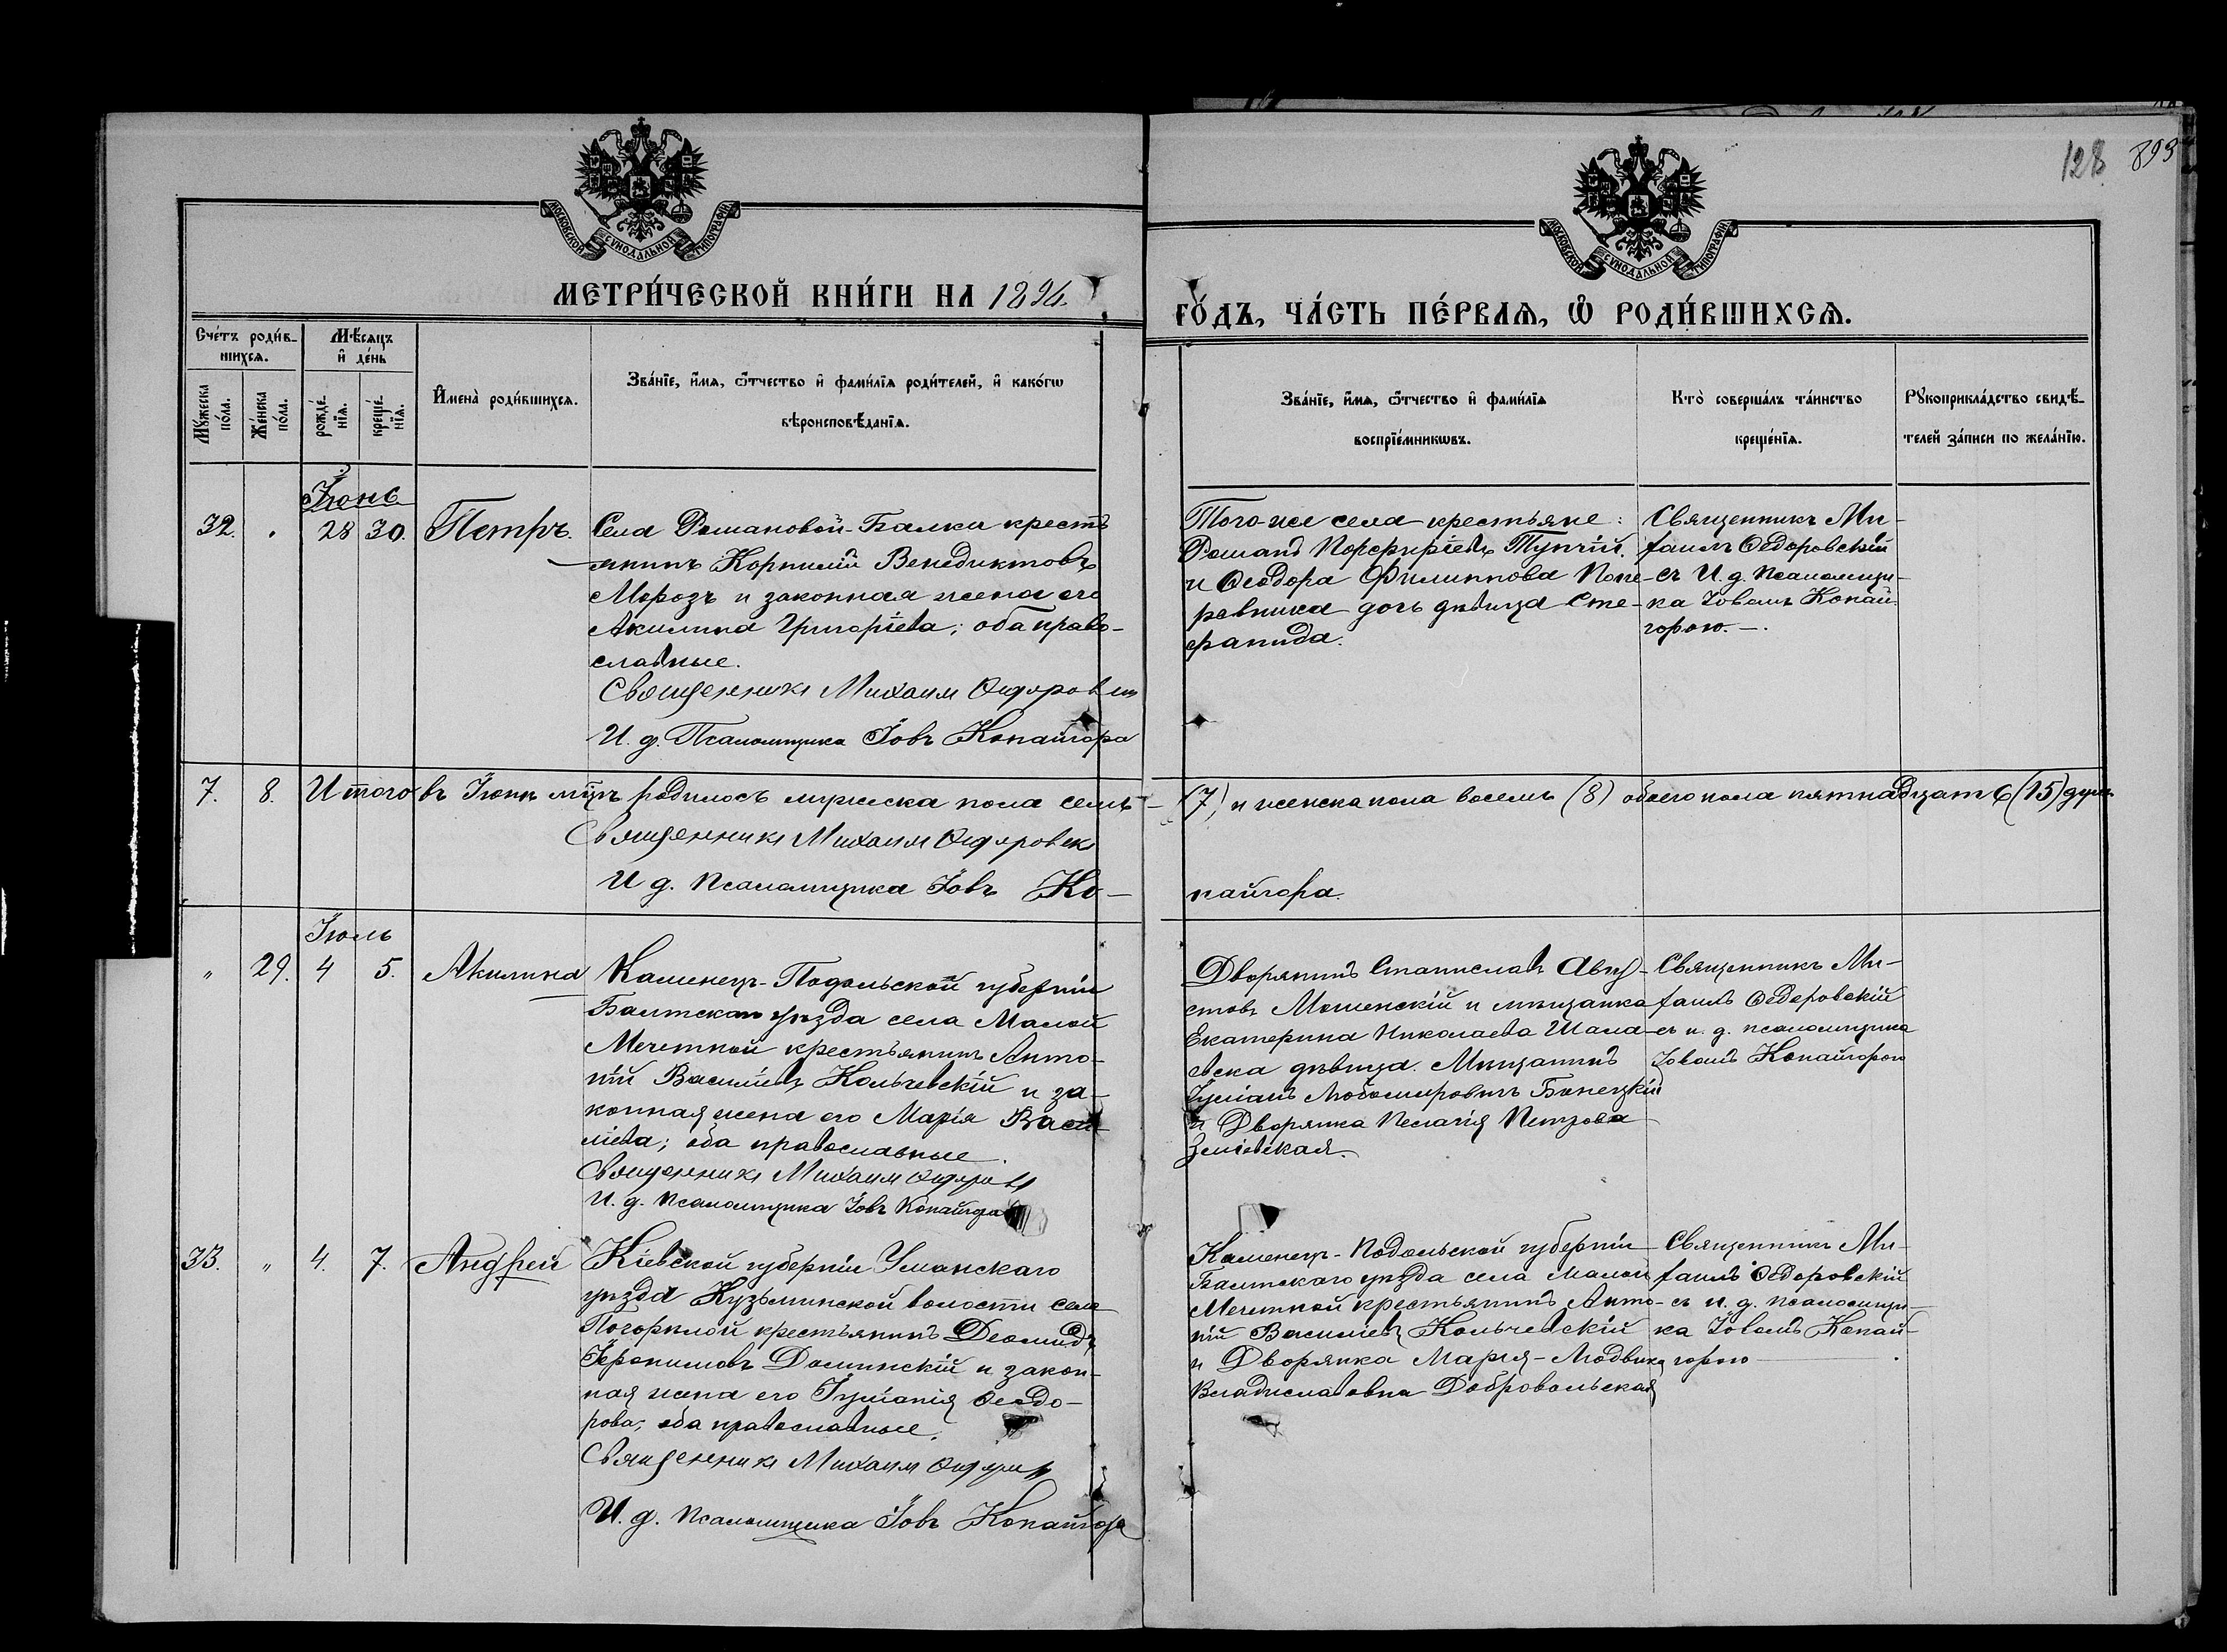 128 893
МОСКОВСКОЙ СУНОДАЛЬНОЙ ТИПОГРАФІИ
МОСКОВСКОЙ СУНОДАЛЬНОЙ ТИПОГРАФІИ
МЕТРИ́ЧЕСКОЙ КНИ́ГИ НА 1894.
ГО́ДЪ, ЧА́СТЬ ПЕ́РВАѦ, Ѡ РОДИ́ВШИХСѦ.
Сче́тъ роди́в-
шихсѧ.
Мѣ́сѧцъ
и҆ де́нь
Мꙋ́жеска
по́ла.
Же́нска
по́ла.
рожде́-
нїѧ.
креще́-
нїѧ.
И҆мена̀ роди́вшихсѧ.
Зва́нїе, и҆́мѧ, ѻ҆́тчество и҆ фами́лїѧ роди́телей, и҆ како́гѡ
вѣроисповѣ́данїѧ.
Зва́нїе, и҆́мѧ, ѻ҆́тчество и҆ фами́лїѧ
воспрїе́мникѡвъ.
Кто̀ соверша́лъ та́инство
креще́нїѧ.
Рꙋкоприкла́дство свидѣ́-
телей за́писи по жела́нїю.
Іюнь
32. „ 28 30. Петръ.
Села Романовой-Балки кресть
янинъ Корнилій Венедиктовъ
Морозъ и законная жена его
Акилина Григоріева; оба право-
славные.
Священникъ Михаилъ Ѳедоровск
И. д. Псаломщика Іовъ Копайгора
Того-же села крестьяне:
Романъ Порфиріевъ Тупчій.
и Ѳеодора Филиппова Поне-
ревника дочь дѣвица Сте-
фанида.
Священникъ Ми-
хаилъ Ѳедоровскій
съ И. д. псаломщи-
ка Іовомъ Копай-
горою.—.
7. 8. Итого въ Іюнѣ м-цѣ родилось мужеска пола семь—
(7) и женска пола восемь (8) обоего пола пятнадцать (15) душъ
Священникъ Михаилъ Ѳедоровск
И. д. Псаломщика Іовъ Ко-
пайгора.
Іюль
„ 29. 4 5. Акилина
Каменецъ-Подольской губерніи
Балтскаго уѣзда села Малой
Мечетной крестьянинъ Анто-
ній Васильевъ Кольчевскій и за-
конная жена его Марія Васи-
ліева; оба православные.
Священникъ Михаилъ Ѳедоров
И. д. Псаломщика Іовъ Копайгора
Дворянинъ Станиславъ Авгу-
стовъ Мошенскій и мѣщанка
Екатерина Николаева Шала-
евска дѣвица. Мѣщанинъ
Іуліанъ Любомировичъ Бонецкій
и Дворянка Пелагія Петрова
Зміевская.
Священникъ Ми-
хаилъ Ѳедоровскій
съ и. д. псаломщика
Іовомъ Копайгорою
33. „ 4. 7. Андрей
Кіевской губерніи Уманскаго
уѣзда Кузьминской волости села
Погорѣлой крестьянинъ Деомидъ
Іеронимовъ Долинскій и закон-
ная жена его Іуліанія Ѳеодо-
рова; оба православные.
Священникъ Михаилъ Ѳедоров
И. д. псаломщика Іовъ Копайгора
Каменецъ-Подольской губерніи
Балтскаго уѣзда села Малой
Мечетной крестьянинъ Анто-
ній Васильевъ Кольчевскій
и Дворянка Марія-Людвика
Владиславовна Добровольская
Священникъ Ми-
хаилъ Ѳедоровскій
съ и. д. псаломщи-
ка Іовомъ Копай-
горою